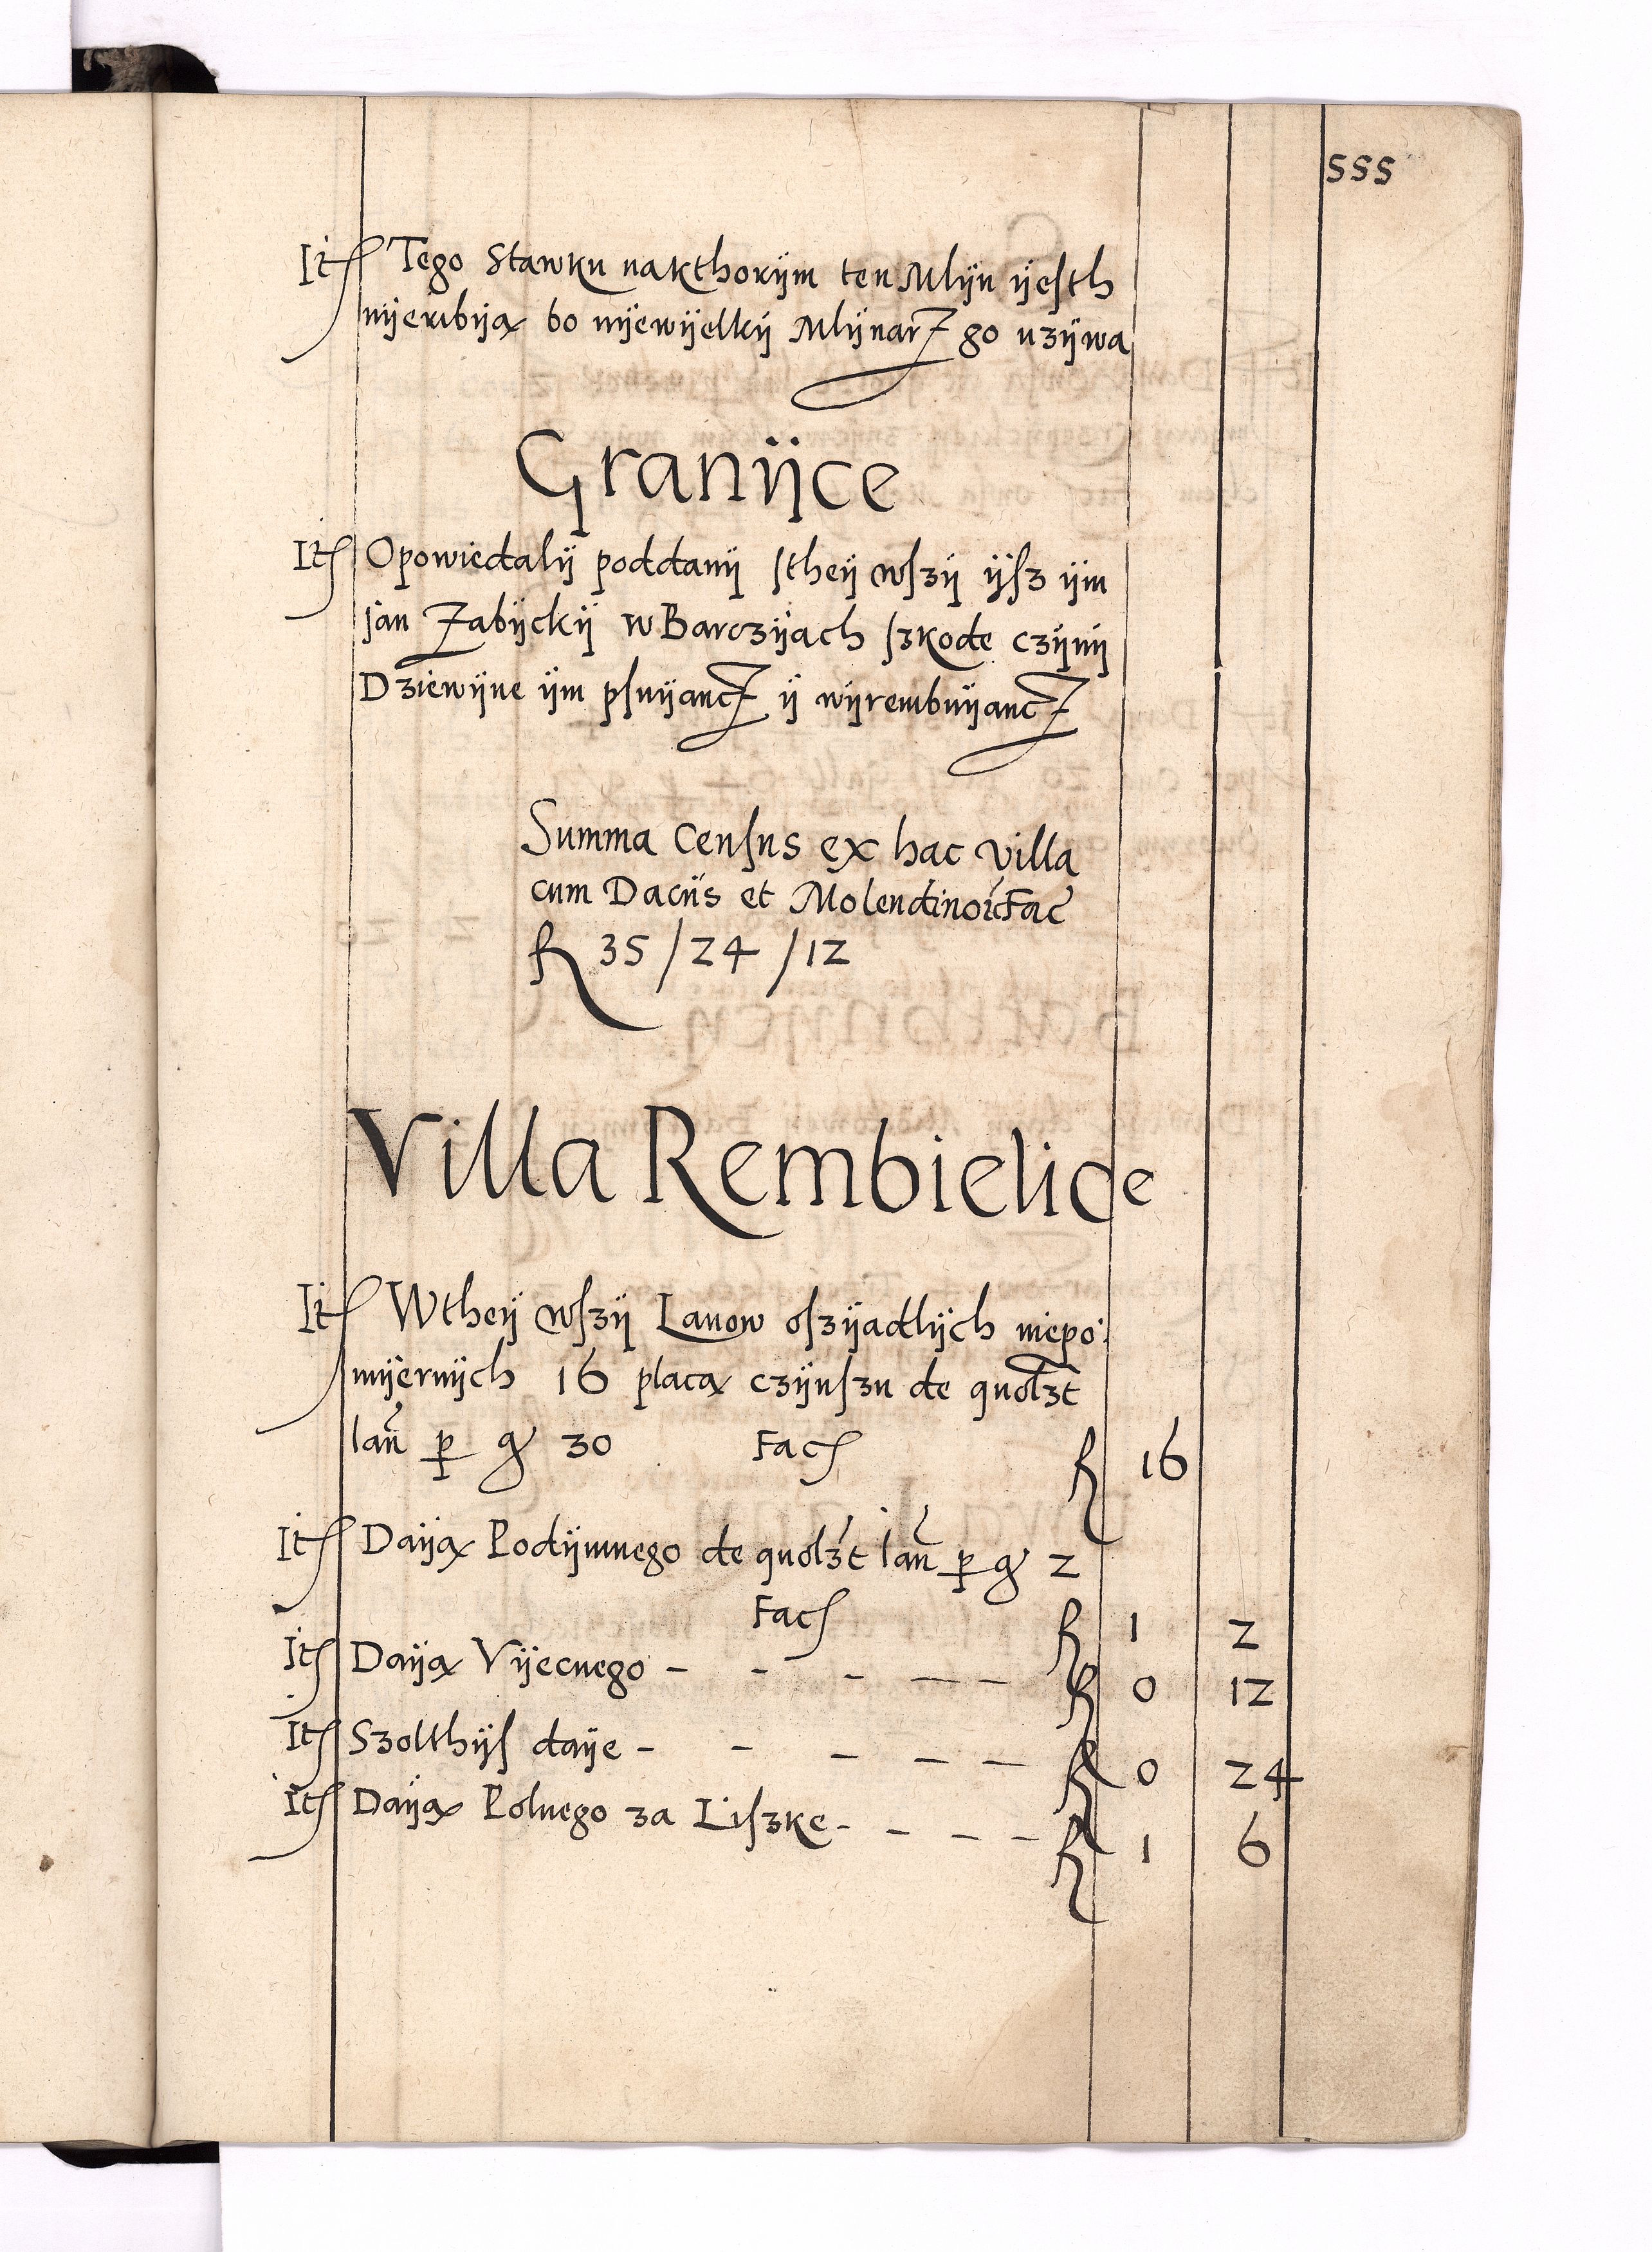 555
It Tego Stawku nakthorÿm ten Mlÿn ÿeſth
nÿeribÿą bo nÿewÿelkÿ MlÿnarZ go uzÿwa
Granÿce
It Opowiedalÿ poddanÿ ſtheÿ wſzÿ ÿſz ÿm
Jan Zabÿckÿ w Barczÿach ſzkode czÿnÿ
Dziewÿne ÿm pſuÿancZ ÿ wÿrembuÿancZ
Summa Cenſus ex hac villa
cum Daciis et Molendinor Fac
fl 35 / 24 / 12
Villa Rembielice
It Wtheÿ wſzÿ Lanow oſzÿadlÿch niepo
mÿernÿch 16 placą czÿnſzu de quolzt
lan p gr 30 Fac fl 16
It Daÿą Podÿmnego de quolzt lan p gr 2
Fac fl 1 2
It Daÿą Vÿecnego - - - - - fl 0 12
It Szolthÿſ daÿe - - - - - fl 0 24
It Daÿą Polnego za Liſzke - - - - fl 1 6